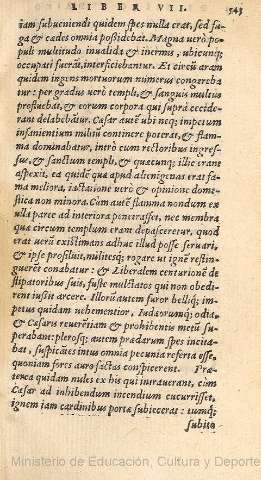 LIBER VII. 543
iam subueniendi quidem spes nulla erat, sed fu-
ga & cædes omnia possidebat. Magna uerò po-
puli multitudo inualida & inermis, ubicunq;
occupati fuerāt, interficiebantur. Et circū aram
quidem ingens mortuorum numerus congereba
tur: per gradus uerò templi, & sanguis multus
profluebat, & eorum corpora qui supra cecide-
rant delabebātur. Cæsar autē ubi necq; impetum
insanientium militū continere poterat, & flam-
ma dominabatur, intrò cum rectoribus ingres-
sus, & sanctum templi, & quæcunq; illic erant
aspexit, ea quidē quæ apud alienigenas erat fa-
ma meliora, iactatione uerò & opinione dome-
stica non minora. Cum autē flamma nondum ex
ulla parte ad interiora penetrasset, nec membra
quæ circum templum eram depasceretur, quod
erat uerū existimans adhuc illud posse seruari,
& ipse prosiluit, militesq; rogare ut ignē restin-
guerēt conabatur: & Liberalem centurionē de
stipatoribus suis, fuste mulctatos qui non obedi-
rent iussit arcere. Illorū autem furor belliq; im-
petus quidam uehementior, Iudæorumq; odiū,
& Cæsaris reuerētiam & prohibentis metū su-
perabant: plerosq; autem prædarum spes incita-
bat, suspicātes intus omnia pecunia referta esse,
quoniam fores auro factas conspicerent. Præ-
terea quidam miles ex his qui intrauerant, cùm
Cæsar ad inhibendum incendium cucurrisset,
ignem iam cardinibus portæ subiecerat: tumq;
subito
Ministerio de Educación, Cultura y Deporte